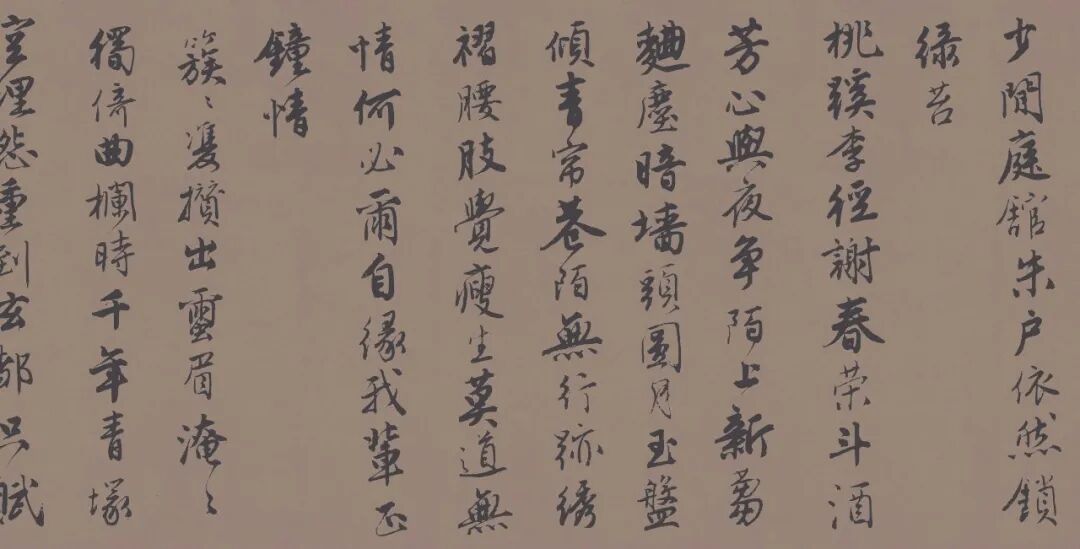 少間庭館朱户依然鎖
緑苔
桃蹊李徑謝春荣斗酒
芳心與夜争陌上新蒭
麯塵暗墙頭圓月玉盤
傾青帘巷陌無行迹綉
褶腰肢覺瘦生莫道無
情何必爾自緣我輩正
鐘情
簇〻雙攢出靈眉淹〻
獨倚曲欄時千年青塚
空埋怨重到玄都只賦